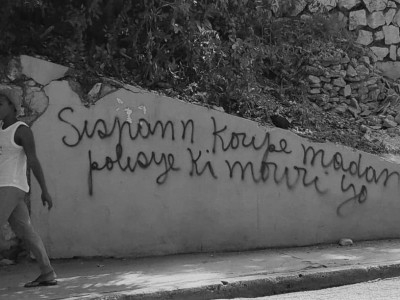 Sispann koupe madan
polisye ki mouri yo